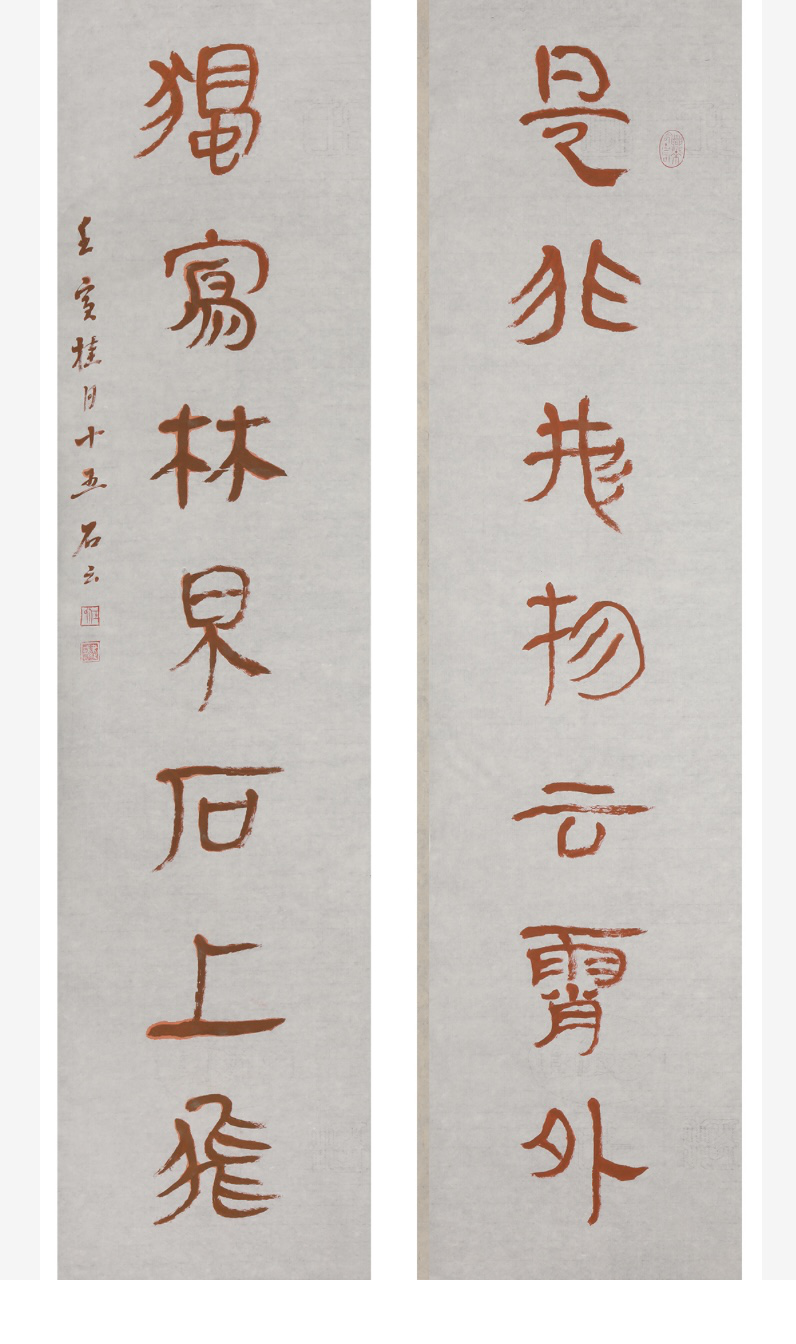 是非物云霄外
独寫林泉石上飛
壬寅桂月十五石云